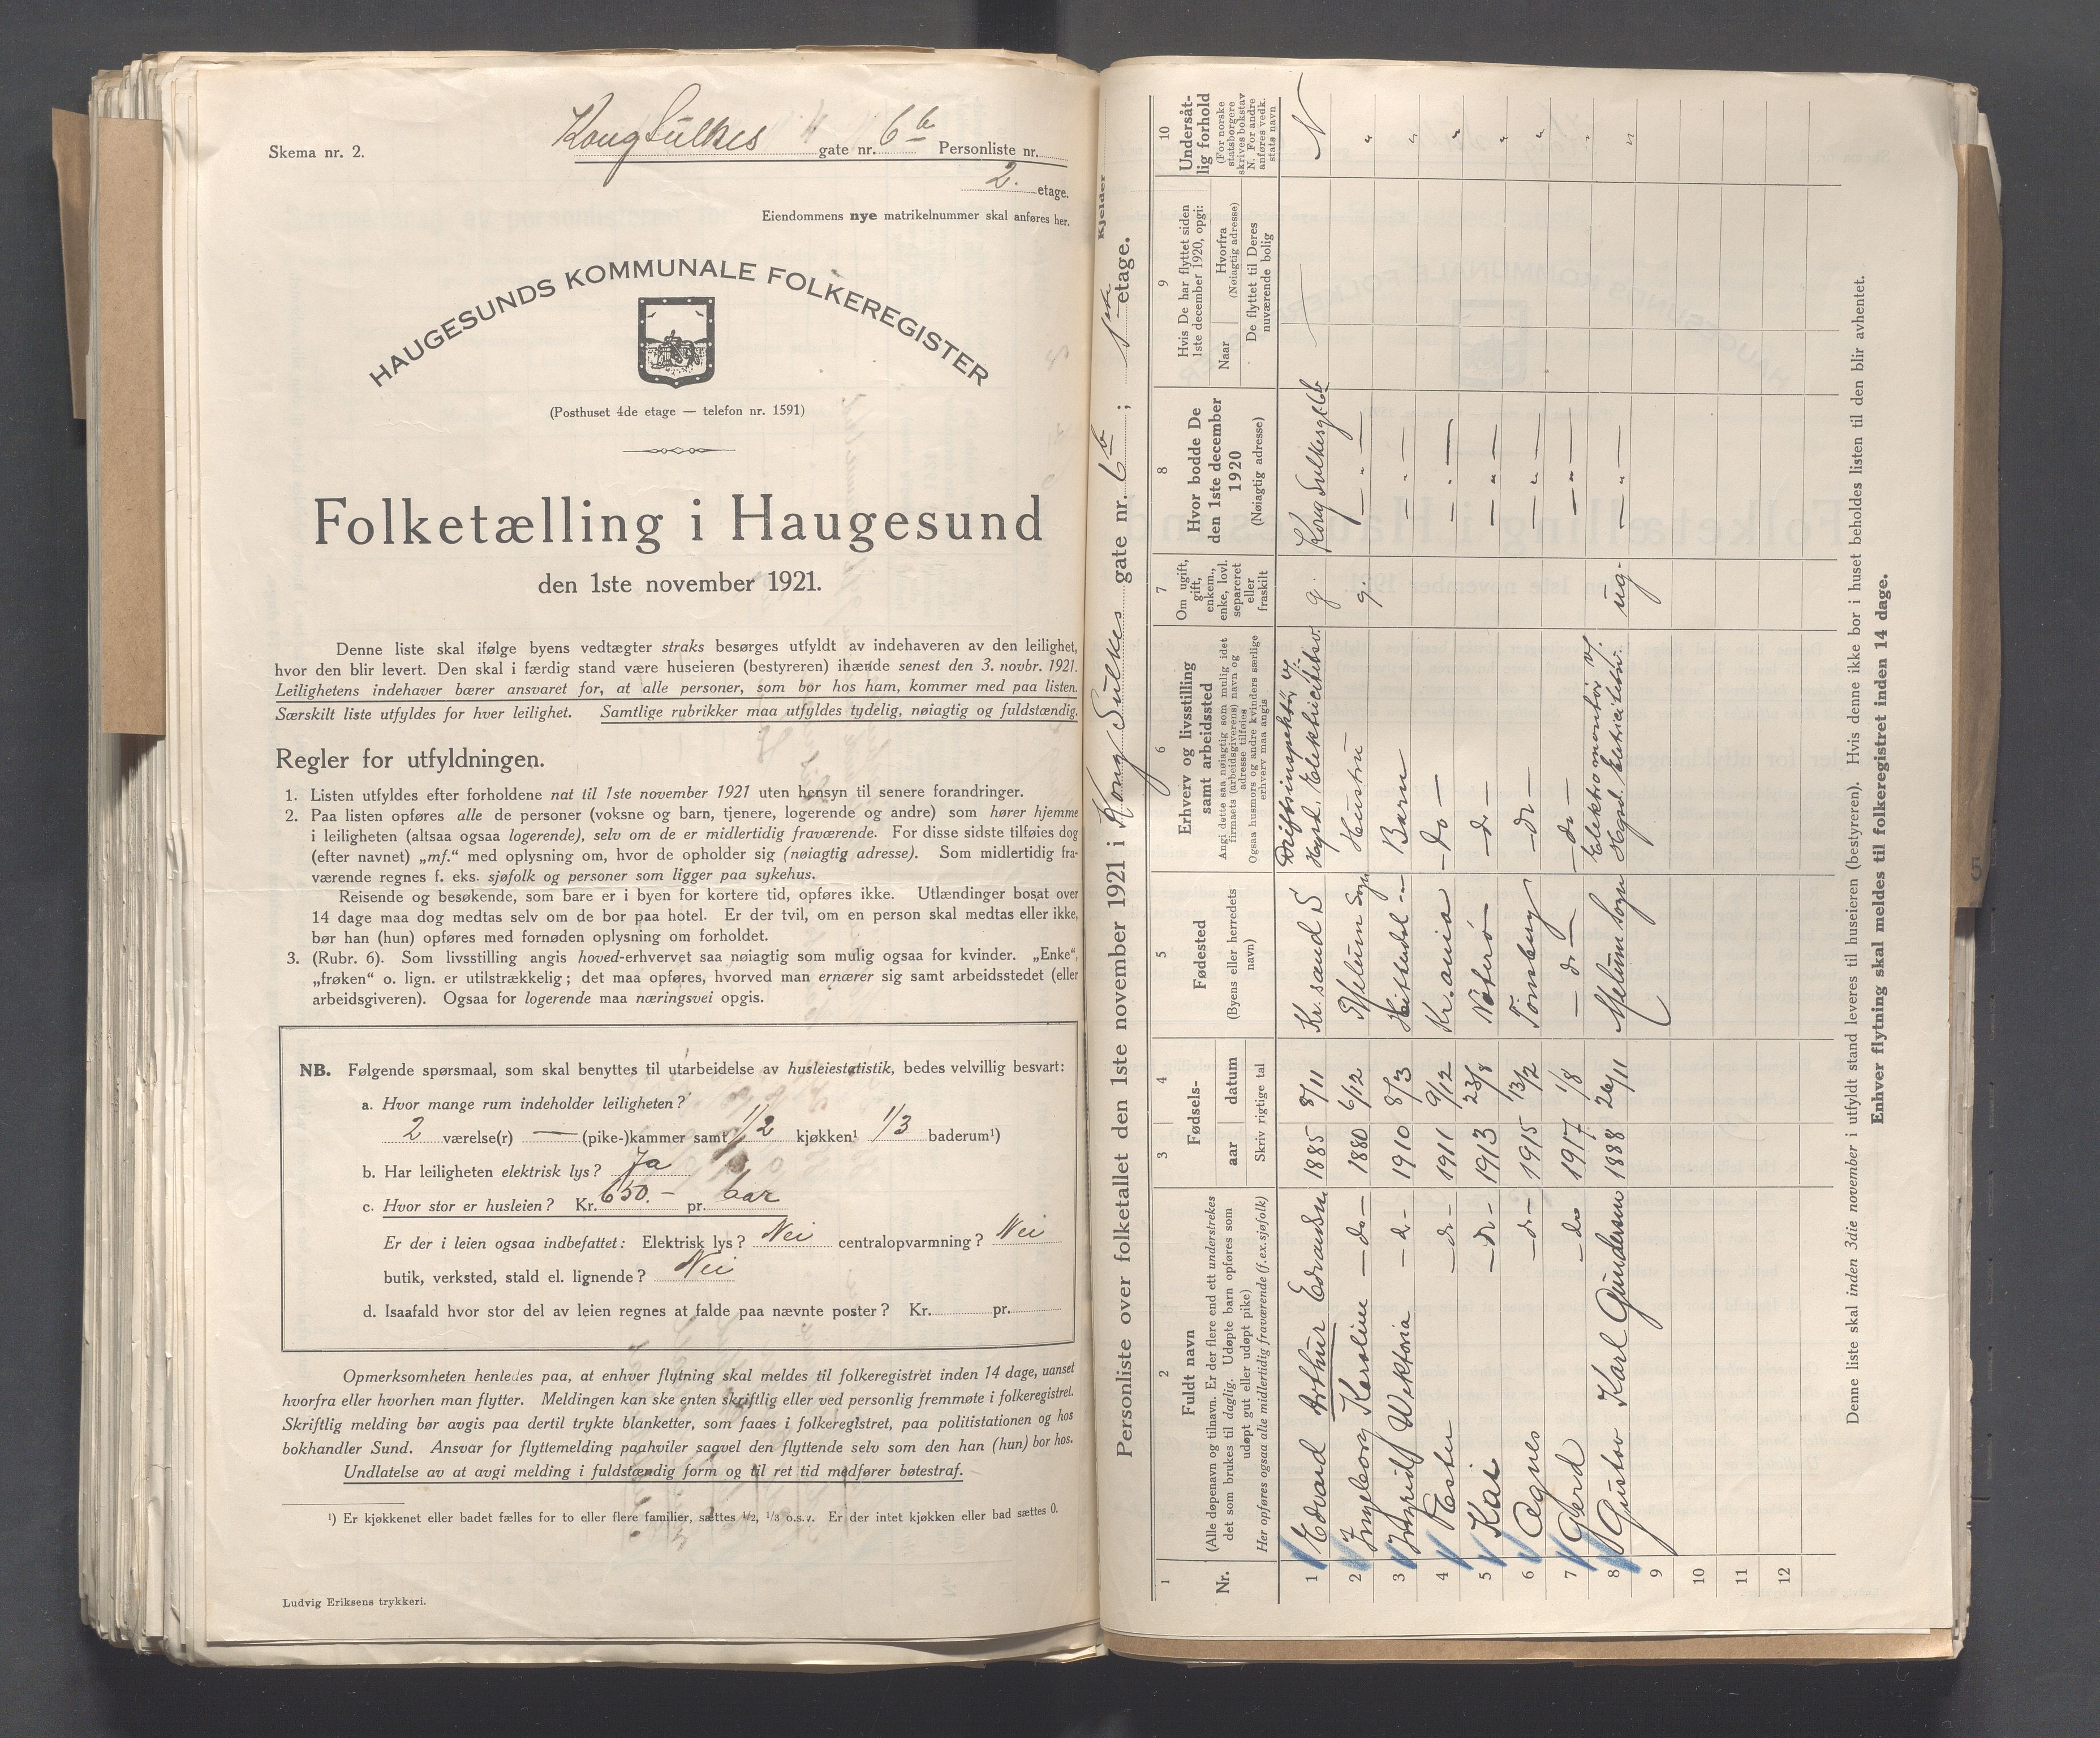 Skema nr. 2.
Kong Sulkes gate nr. 6b Personliste nr.
2. etage.
Eiendommens nye matrikelnummer skal anføres her.
HAUGESUNDS KOMMUNALE FOLKEREGISTER
(Posthuset 4de etage — telefon nr. 1591)
Folketælling i Haugesund
den 1ste november 1921.
Denne liste skal ifølge byens vedtægter straks besørges utfyldt av indehaveren av den leilighet,
hvor den blir levert. Den skal i færdig stand være huseieren (bestyreren) ihænde senest den 3. novbr. 1921.
Leilighetens indehaver bærer ansvaret for, at alle personer, som bor hos ham, kommer med paa listen.
Særskilt liste utfyldes for hver leilighet. Samtlige rubrikker maa utfyldes tydelig, nøiagtig og fuldstændig.
Regler for utfyldningen.
1. Listen utfyldes efter forholdene nat til 1ste november 1921 uten hensyn til senere forandringer.
2. Paa listen opføres alle de personer (voksne og barn, tjenere, logerende og andre) som hører hjemme
i leiligheten (altsaa ogsaa logerende), selv om de er midlertidig fraværende. For disse sidste tilføies dog
(efter navnet) „mf.“ med oplysning om, hvor de opholder sig (nøiagtig adresse). Som midlertidig fra-
værende regnes f. eks. sjøfolk og personer som ligger paa sykehus.
Reisende og besøkende, som bare er i byen for kortere tid, opføres ikke. Utlændinger bosat over
14 dage maa dog medtas selv om de bor paa hotel. Er der tvil, om en person skal medtas eller ikke,
bør han (hun) opføres med fornøden oplysning om forholdet.
3. (Rubr. 6). Som livsstilling angis hoved-erhvervet saa nøiagtig som mulig ogsaa for kvinder. „Enke“,
„frøken“ o. lign. er utilstrækkelig; det maa opføres, hvorved man ernærer sig samt arbeidsstedet (eller
arbeidsgiveren). Ogsaa for logerende maa næringsvei opgis.
NB. Følgende spørsmaal, som skal benyttes til utarbeidelse av husleiestatistik, bedes velvillig besvart:
a. Hvor mange rum indeholder leiligheten?
2 værelse(r) — (pike-)kammer samt 1/2 kjøkken¹ 1/3 baderum¹)
b. Har leiligheten elektrisk lys? Ja
c. Hvor stor er husleien? Kr. 650.- pr. aar
Er der i leien ogsaa indbefattet: Elektrisk lys? Nei centralopvarmning? Nei
butik, verksted, stald el. lignende? Nei
d. Isaafald hvor stor del av leien regnes at falde paa nævnte poster? Kr. pr.
Opmerksomheten henledes paa, at enhver flytning skal meldes til folkeregistret inden 14 dage, uanset
hvorfra eller hvorhen man flytter. Meldingen kan ske enten skriftlig eller ved personlig fremmøte i folkeregistret.
Skriftlig melding bør avgis paa dertil trykte blanketter, som faaes i folkeregistret, paa politistationen og hos
bokhandler Sund. Ansvar for flyttemelding paahviler saavel den flyttende selv som den han (hun) bor hos.
Undlatelse av at avgi melding i fuldstændig form og til ret tid medfører bøtestraf.
¹) Er kjøkkenet eller badet fælles for to eller flere familier, sættes 1/2, 1/3 o.s.v. Er der intet kjøkken eller bad sættes 0.
Ludvig Eriksens trykkeri.
Personliste over folketallet den 1ste november 1921 i Kong Sulkes gate nr. 6b; 1ste etage.
Kjelder
1 2 3 4 5 6 7 8 9 10
Nr.
Fuldt navn
(Alle døpenavn og tilnavn. Er der flere end ett understrekes
det som brukes til daglig. Udøpte barn opføres som
udøpt gut eller udøpt pike)
Her opføres ogsaa alle midlertidig fraværende (f.ex.sjøfolk)
Fødsels-
aar datum
Skriv rigtige tal
Fødested
(Byens eller herredets
navn)
Erhverv og livsstilling
samt arbeidssted
Angi dette saa nøiagtig som mulig idet
firmaets (arbeidsgiverens) navn og
adresse tilføies
Ogsaa husmors og andre kvinders særlige
erhverv maa angis
Om ugift,
gift,
enkem.,
enke, lovl.
separeret
eller
fraskilt
Hvor bodde De
den 1ste december
1920
(Nøiagtig adresse)
Hvis De har flyttet siden
1ste december 1920, opgi:
Naar Hvorfra
(Nøiagtig adresse)
De flyttet til Deres
nuværende bolig
Undersåt-
lig forhold
(For norske
statsborgere
skrives bokstav
N. For andre
anføres vedk.
stats navn
1 Edvard Arthur Edvardsen 1885 8/11 Kr. sand S Driftsinspektør v/ Hgsd. Elektricitetsv. g. Kong Sulkesgt. 6b — N
2 Ingeborg Karoline —do— 1880 6/12 Mælum Sogn Hustru g. — " — "
3 Ingrid Viktoria —d— 1910 8/3 Hitterdal — Barn — " — "
4 Ester —do— 1911 9/12 Kr.ania —Do— — " — "
5 Kai —do— 1913 23/8 Nøterø —do— — " — "
6 Agnes —do— 1915 13/2 Tønsberg —do— — " — "
7 Gerd —do 1917 1/8 —do— —do— — " — "
8 Gustav Karl Gundersen 1888 26/11 Mælum Sogn Elektromontør v/ Hgsd. Elektricitetsv. ug. — " — "
9
10
11
12
Denne liste skal inden 3die november i utfyldt stand leveres til huseieren (bestyreren). Hvis denne ikke bor i huset beholdes listen til den blir avhentet.
Enhver flytning skal meldes til folkeregistret inden 14 dage.